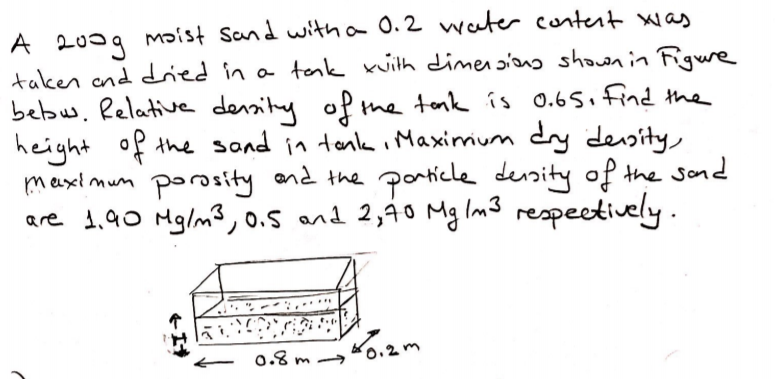 A 200g moist sand with a 0.2 water content was
taken and dried in a tank with dimensions shown in Figure
below. Relative density of the tank is 0.65. Find the
height of the sand in tank. Maximum dry density,
maximum porosity and the particle density of the sand
are 1.90 Mg/m³, 0.5 and 2,70 Mg/m³ respectively.
H
0.8 m
0.2 m